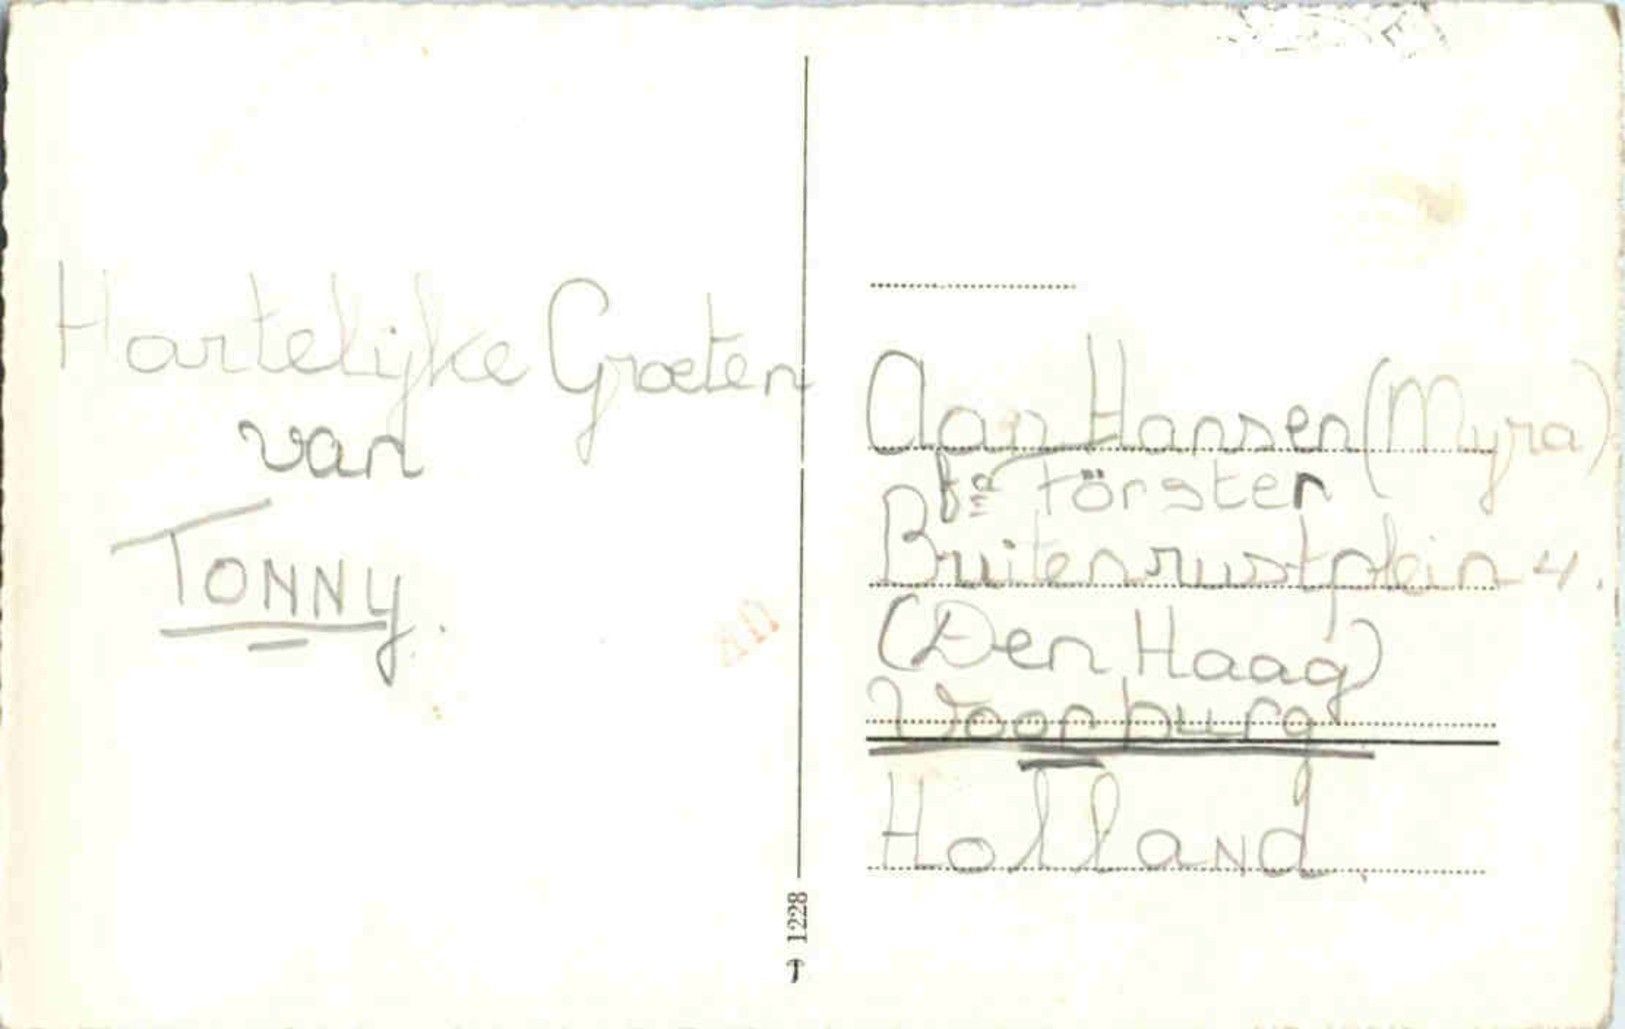 Hartelijke Groeten
van
TONNY.
Aan Hansen (Myra)
Förster
Buitenrustplein 4.
(Den Haag)
Voorburg
Holland.
1228